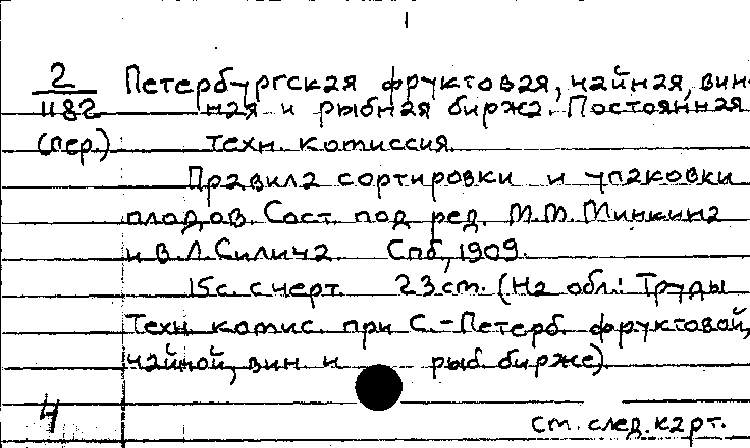 1
2 Петербургская фруктовая, чайная, вин-
1182 ная и рыбная биржа. Постоянная
(пер.) техн. комиссия.
Правила сортировки и упаковки
плодов. Сост. под ред. М.М. Минкина
и В.Л. Силича. Спб, 1909.
15с. с черт. 23 см. (На обл.: Труды
Техн. комис. при С.-Петерб. фруктовой,
чайной, вин. и рыб. бирже).
4
см. след. карт.